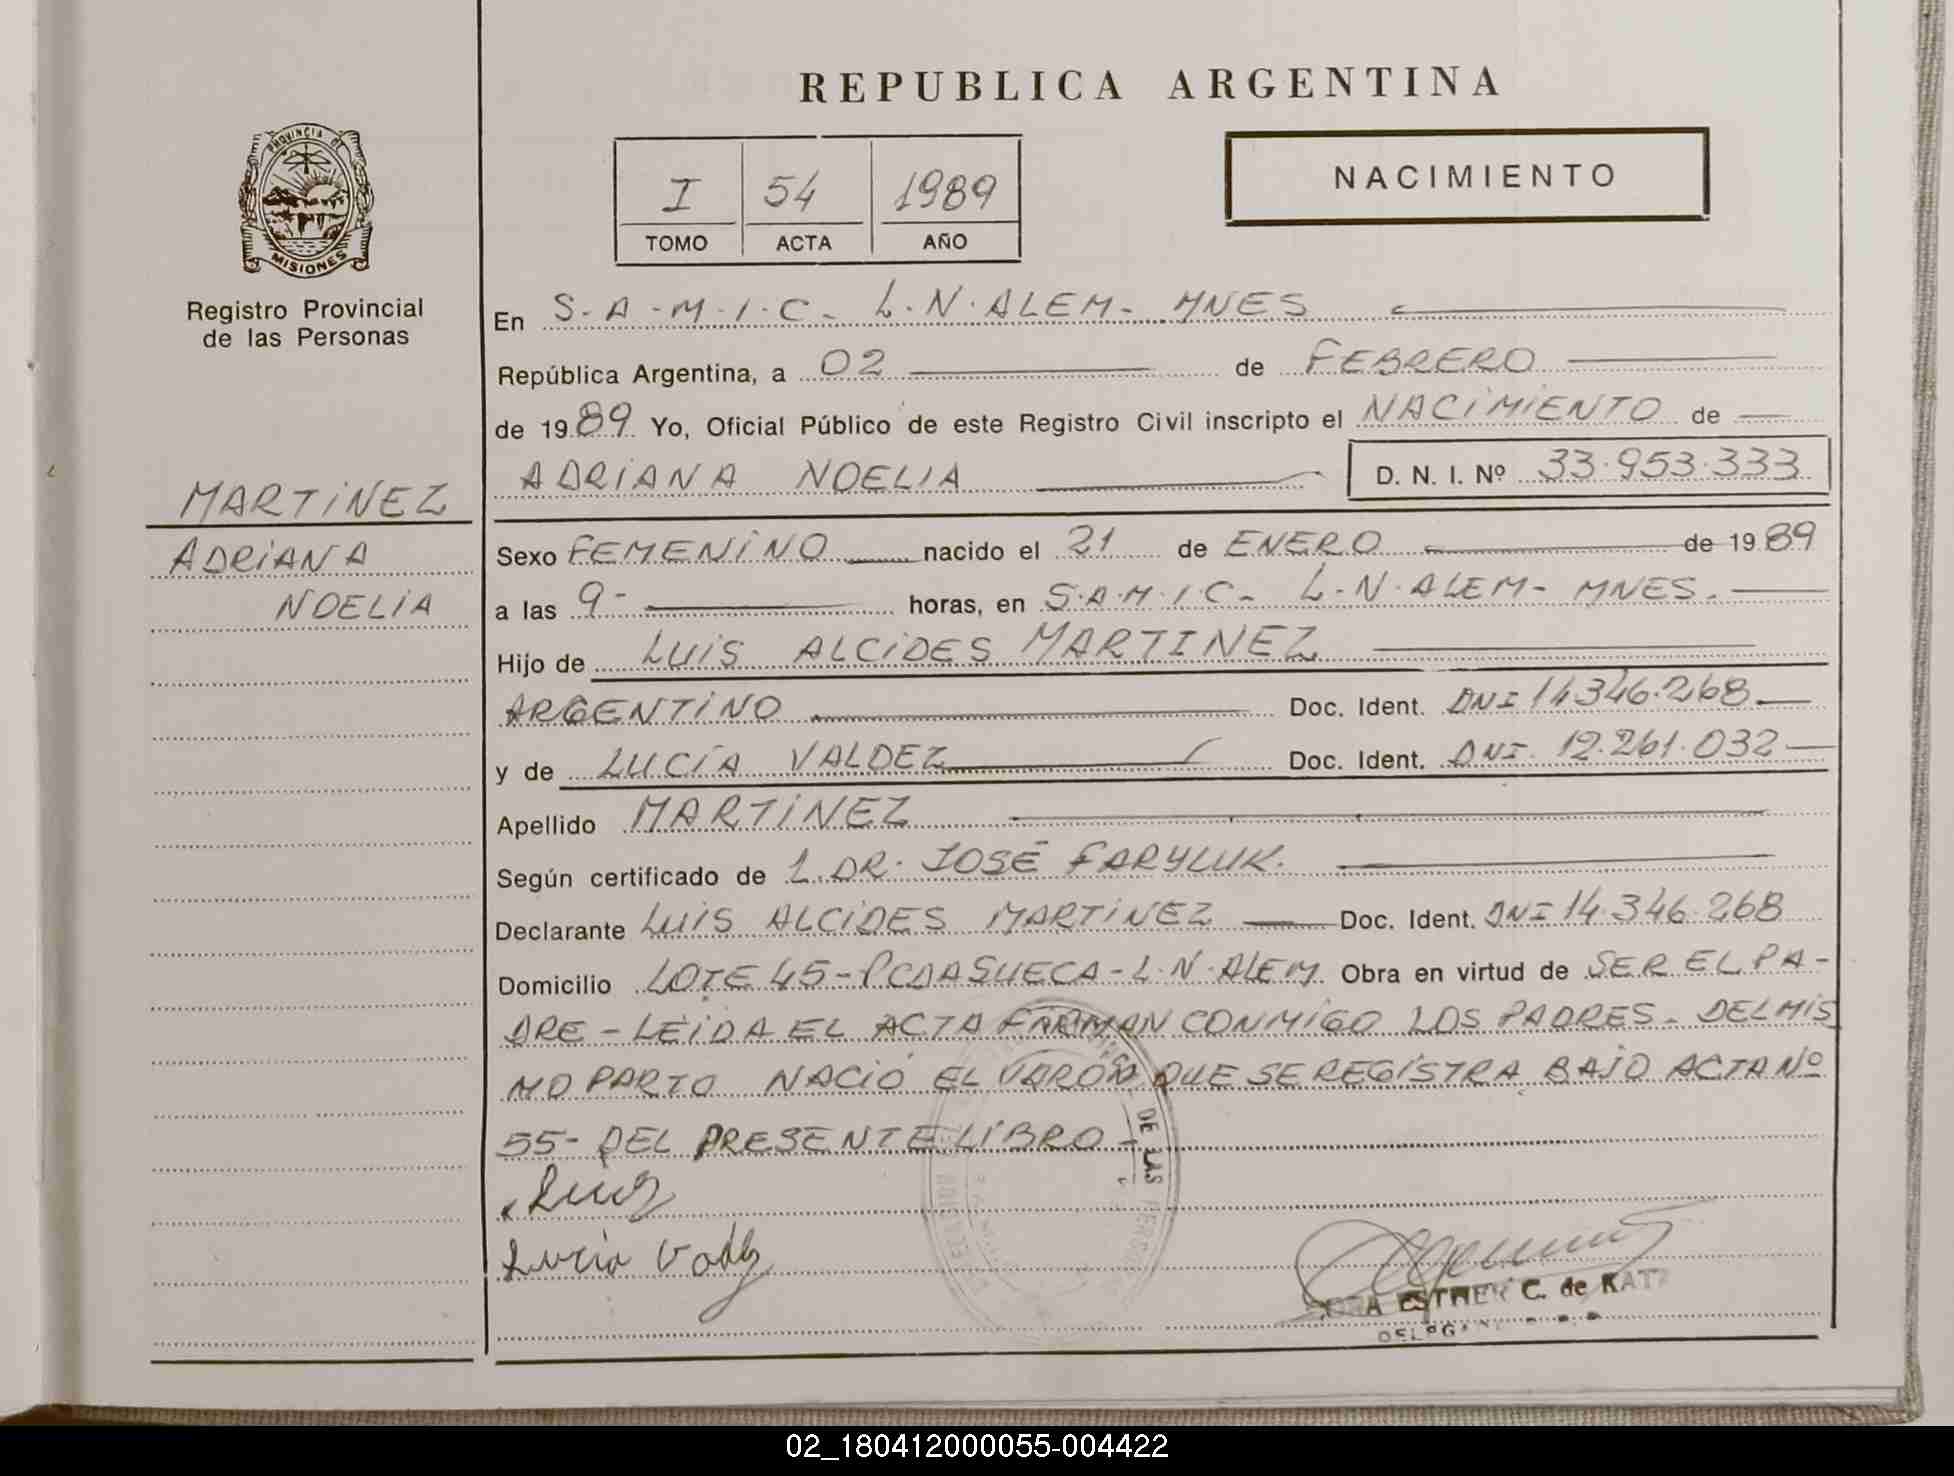 REPUBLICA ARGENTINA
PROVINCIA DE
MISIONES
Registro Provincial
de las Personas
I 54 1989
TOMO ACTA AÑO
NACIMIENTO
En S.A.M.I.C- L.N.ALEM- MNES
República Argentina, a 02 de FEBRERO
de 1989 Yo, Oficial Público de este Registro Civil inscripto el NACIMIENTO de
ADRIANA NOELIA D. N. I. Nº 33.953.333
MARTINEZ
ADRIANA
NOELIA
Sexo FEMENINO nacido el 21 de ENERO de 1989
a las 9- horas, en S.A.M.I.C- L.N.ALEM- MNES.
Hijo de LUIS ALCIDES MARTINEZ
ARGENTINO Doc. Ident. DNI 14346.268
y de LUCÍA VALDEZ Doc. Ident. DNI. 12.261.032
Apellido MARTINEZ
Según certificado de 1. DR. JOSÉ FARYLUK.
Declarante LUIS ALCIDES MARTINEZ Doc. Ident. DNI 14.346.268
Domicilio LOTE 45-PCDASUECA-L.N.ALEM Obra en virtud de SER EL PA-
DRE - LEIDA EL ACTA FIRMAN CONMIGO LOS PADRES- DEL MIS
MO PARTO NACIÓ EL VARON QUE SE REGISTRA BAJO ACTA Nº
55- DEL PRESENTE LIBRO
DE LAS
Luis
Lucia Valdez
ESTHER C. de KATZ
02_180412000055-004422